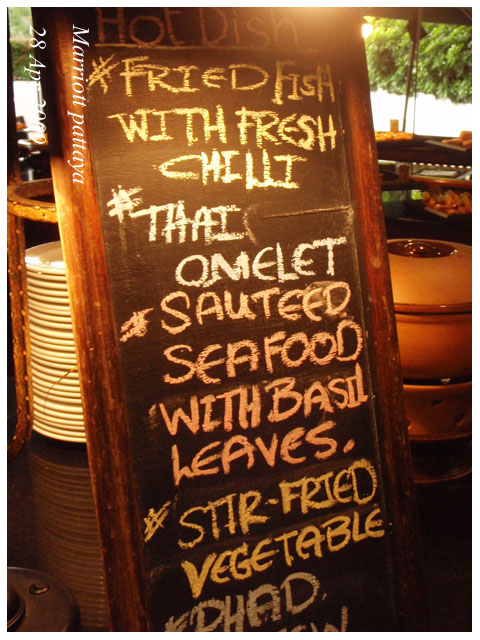 Hot Dish
* FRIED FISH
WITH FRESH
CHILLI
* THAI
OMELET
* SAUTEED
SEAFOOD
WITH BASIL
LEAVES.
* STIR-FRIED
VEGETABLE
* PHAD.
Marriott pattaya